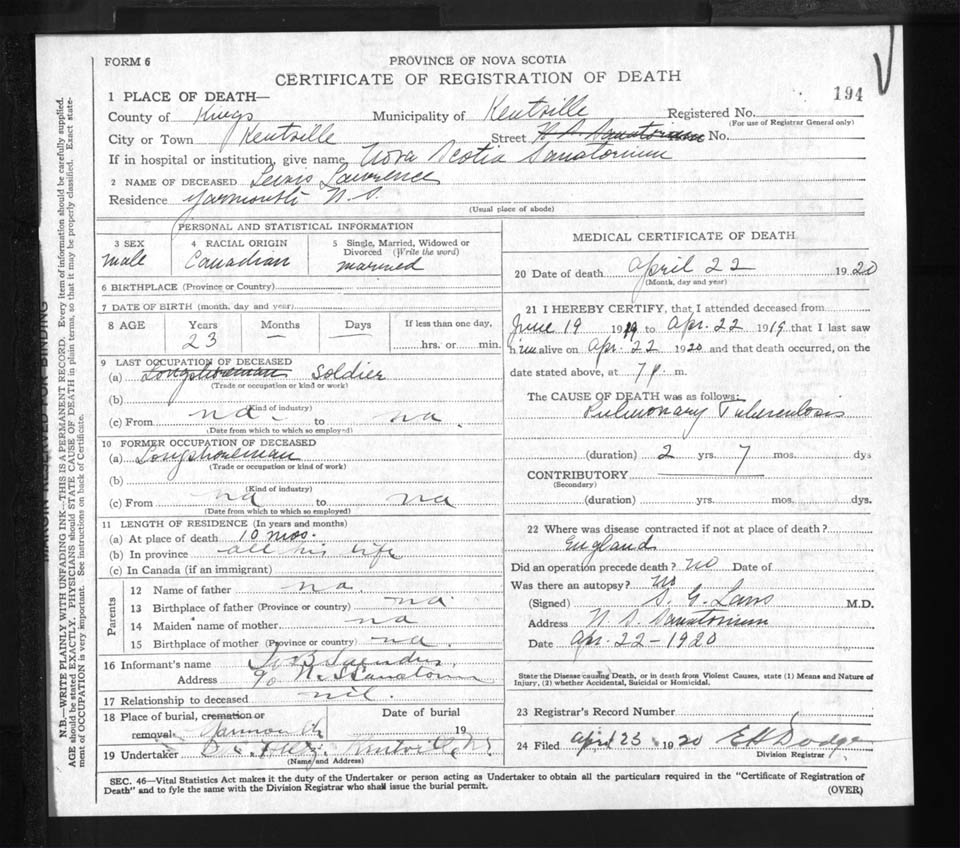 FORM 6
PROVINCE OF NOVA SCOTIA
CERTIFICATE OF REGISTRATION OF DEATH
194
1 PLACE OF DEATH—
County of Kings Municipality of Kentville Registered No.
(For use of Registrar General only)
City or Town Kentville Street N. S. Sanatorium No.
If in hospital or institution, give name Nova Scotia Sanatorium
2 NAME OF DECEASED Lewis Lawrence
Residence Yarmouth N. S.
(Usual place of abode)
PERSONAL AND STATISTICAL INFORMATION
3 SEX
male
4 RACIAL ORIGIN
Canadian
5 Single, Married, Widowed or Divorced (Write the word)
married
6 BIRTHPLACE (Province or Country)
7 DATE OF BIRTH (month, day and year)
8 AGE Years Months Days If less than one day,
23 — — hrs. or min.
9 LAST OCCUPATION OF DECEASED
(a) Longshoreman Soldier
(Trade or occupation or kind or work)
(b)
(Kind of industry)
(c) From na to na
(Date from which to which so employed)
10 FORMER OCCUPATION OF DECEASED
(a) Longshoreman
(Trade or occupation or kind of work)
(b)
(Kind of industry)
(c) From na to na
(Date from which to which so employed)
11 LENGTH OF RESIDENCE (In years and months)
(a) At place of death 10 mos.
(b) In province all his life
(c) In Canada (if an immigrant)
Parents
12 Name of father na
13 Birthplace of father (Province or country) na
14 Maiden name of mother na
15 Birthplace of mother (Province or country) na
16 Informant's name
Address c/o N. S. Sanatorium
17 Relationship to deceased nil.
18 Place of burial, cremation or removal Date of burial
19
19 Undertaker Kentville, N.S.
(Name and Address)
MEDICAL CERTIFICATE OF DEATH
20 Date of death April 22 1920
(Month, day and year)
21 I HEREBY CERTIFY, that I attended deceased from
June 19 1919 to Apr. 22 1919 that I last saw
him alive on Apr. 22 1920 and that death occurred, on the
date stated above, at 7 p. m.
The CAUSE OF DEATH was as follows:
Pulmonary Tuberculosis
(duration) 2 yrs. 7 mos. dys
CONTRIBUTORY
(Secondary)
(duration) yrs. mos. dys.
22 Where was disease contracted if not at place of death?
England
Did an operation precede death? no Date of
Was there an autopsy? no
(Signed) M.D.
Address N. S. Sanatorium
Date Apr. 22 - 1920
State the Disease causing Death, or in death from Violent Causes, state (1) Means and Nature of
Injury, (2) whether Accidental, Suicidal or Homicidal.
23 Registrar's Record Number
24 Filed April 23 1920 E H Dodge
Division Registrar
SEC. 46—Vital Statistics Act makes it the duty of the Undertaker or person acting as Undertaker to obtain all the particulars required in the "Certificate of Registration of
Death" and to fyle the same with the Division Registrar who shall issue the burial permit.
(OVER)
MARGIN RESERVED FOR BINDING
N.B.—WRITE PLAINLY WITH UNFADING INK—THIS IS A PERMANENT RECORD. Every item of information should be carefully supplied.
AGE should be stated EXACTLY. PHYSICIANS should STATE CAUSE OF DEATH in plain terms, so that it may be properly classified. Exact state-
ment of OCCUPATION is very important. See instructions on back of Certificate.